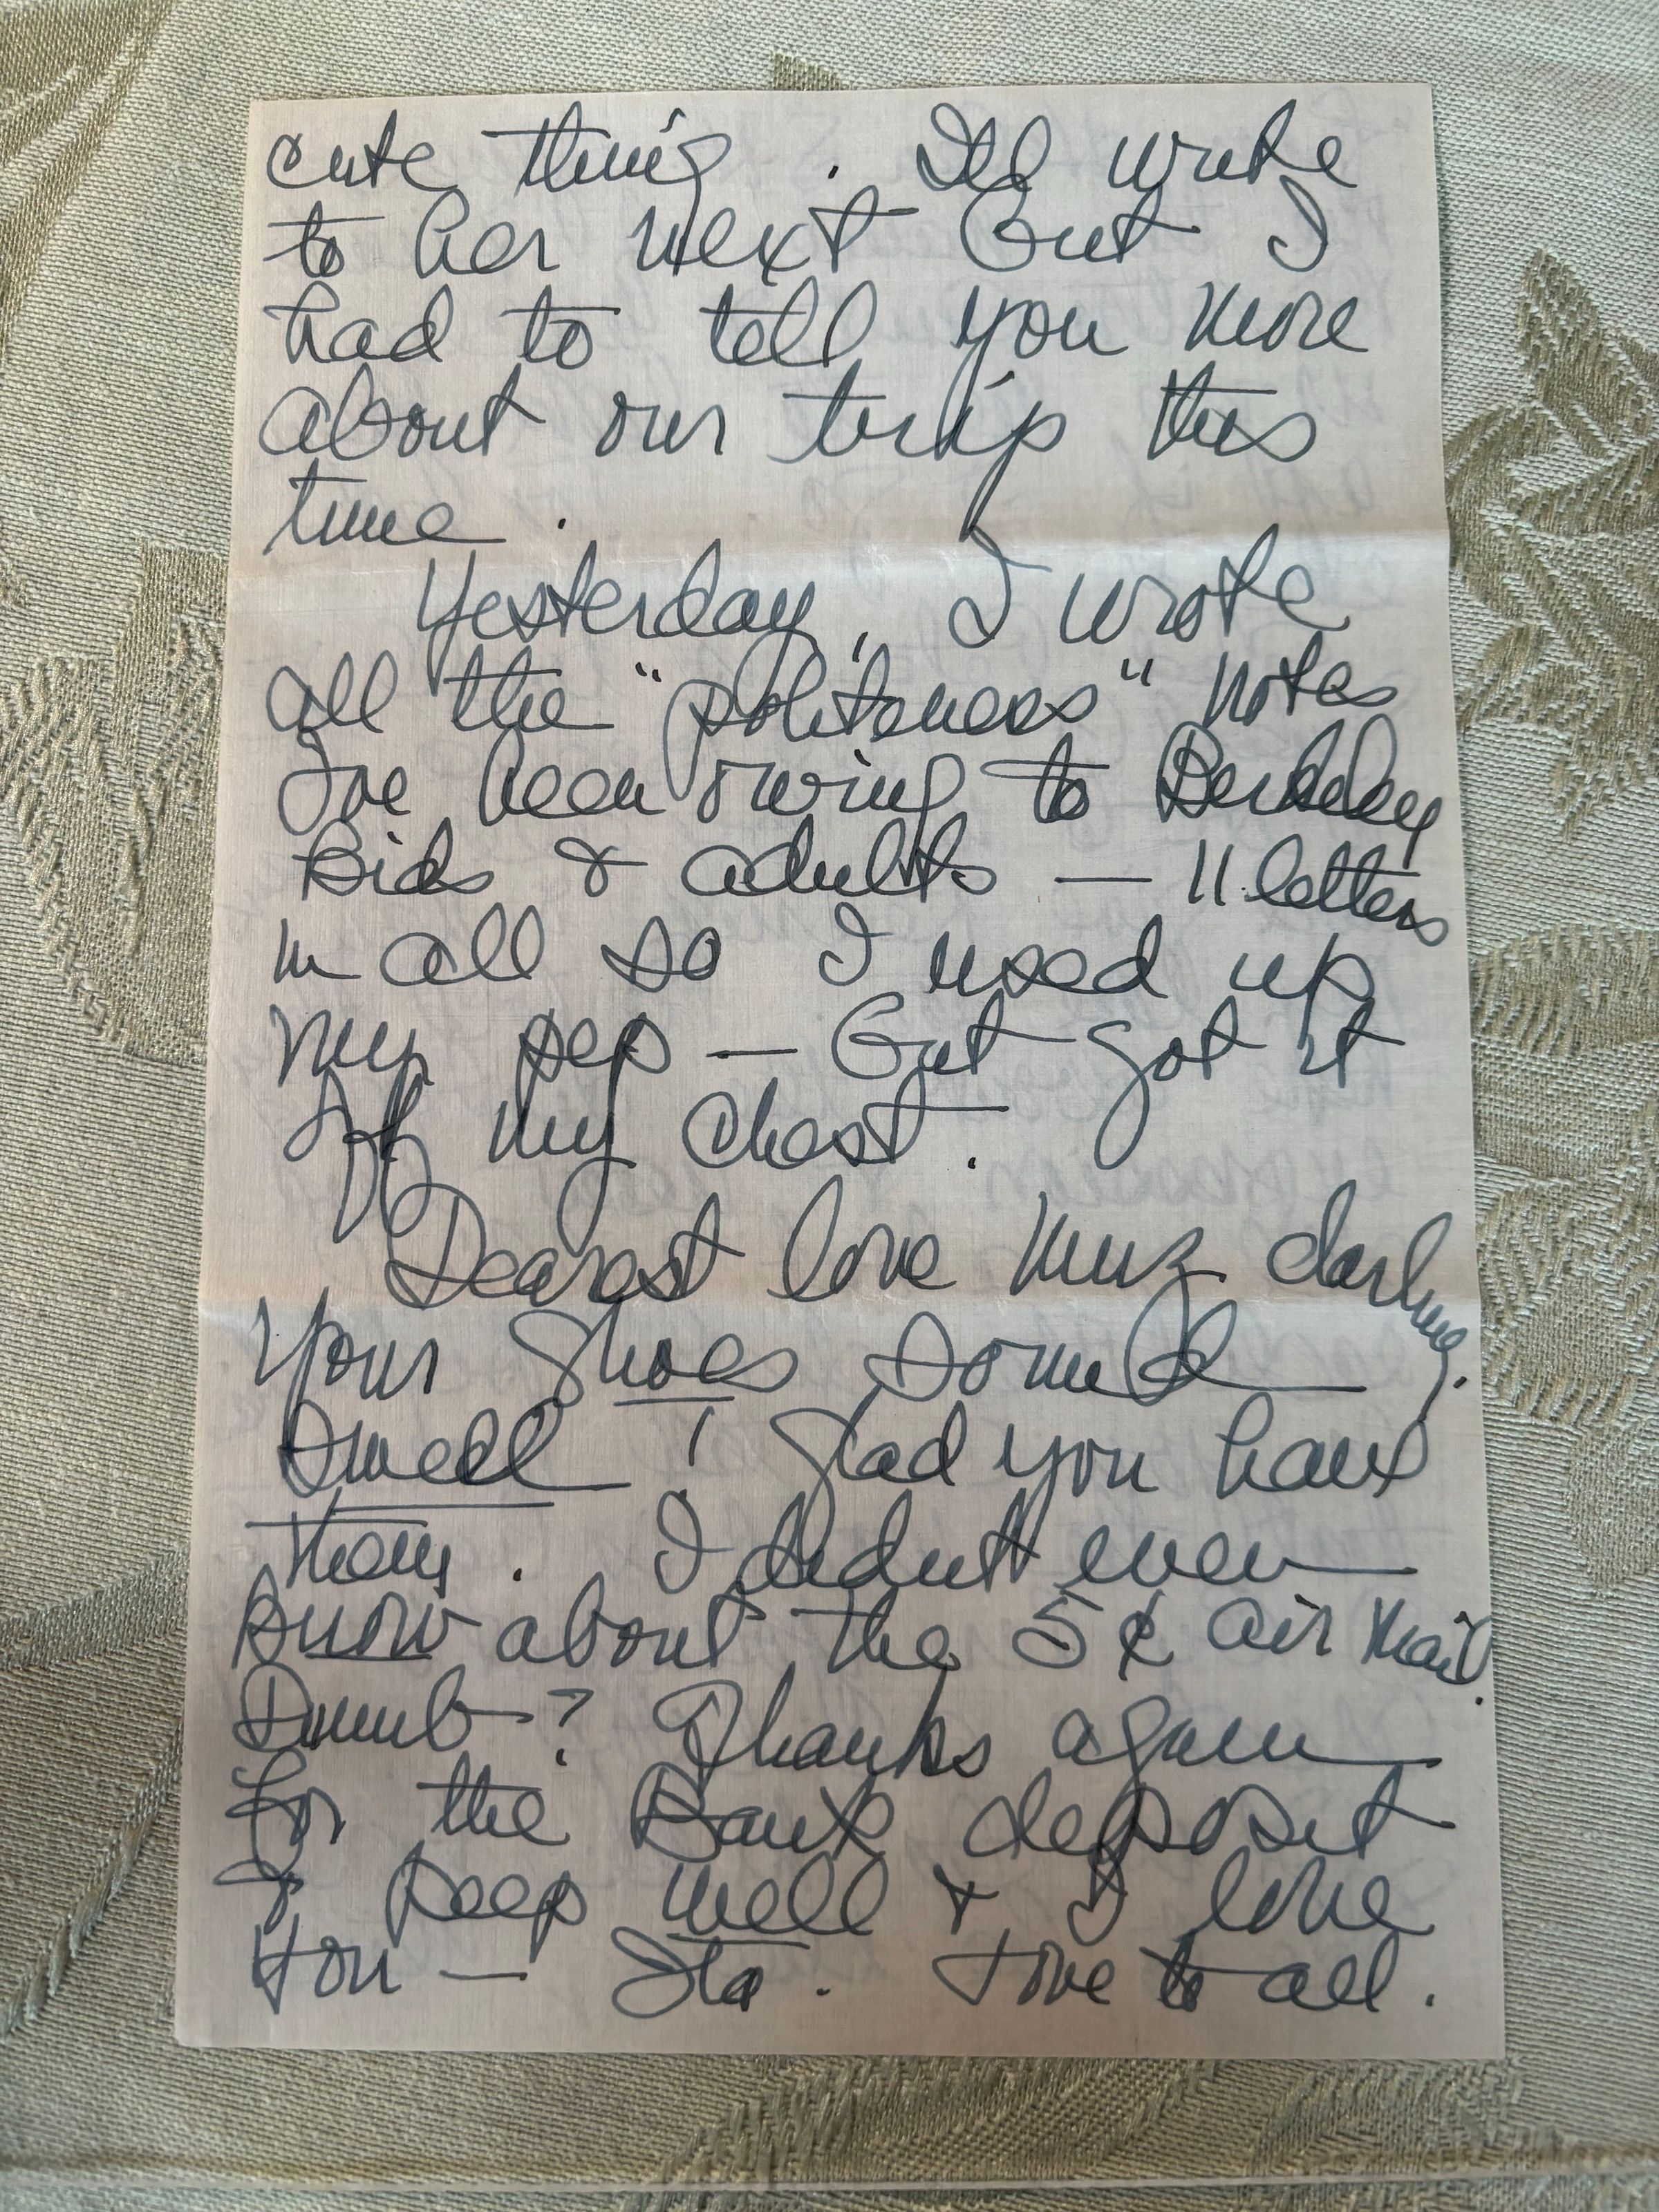 cute thing. I'll write
to her next but I
had to tell you more
about our trip this
time.
Yesterday, I wrote
all the "politeness" notes
I've been owing to Berkeley
Kids & adults — 11 letters
in all so I used up
my pep — but got it
off my chest.
Dearest love Muz darling.
Your shoes sound
swell! Glad you have
them. I didn't even
know about the 5¢ air mail.
Dumb? Thanks again
for the Bank deposit
& keep well & I love
You — Love to all.